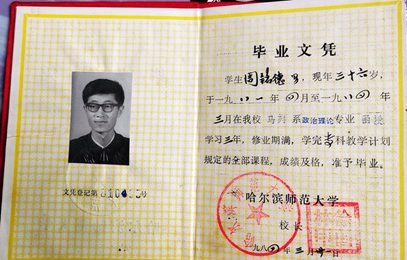 毕业文凭
学生周铭德 男,现年三十六岁,
于一九八一年四月至一九八四年
三月在我校 马列 系政治理论专业 函授
学习三年,修业期满,学完专科教学计划
规定的全部课程,成绩及格,准予毕业。
文凭登记第 号
哈尔滨师范大学
校长
一九八四年三月 日